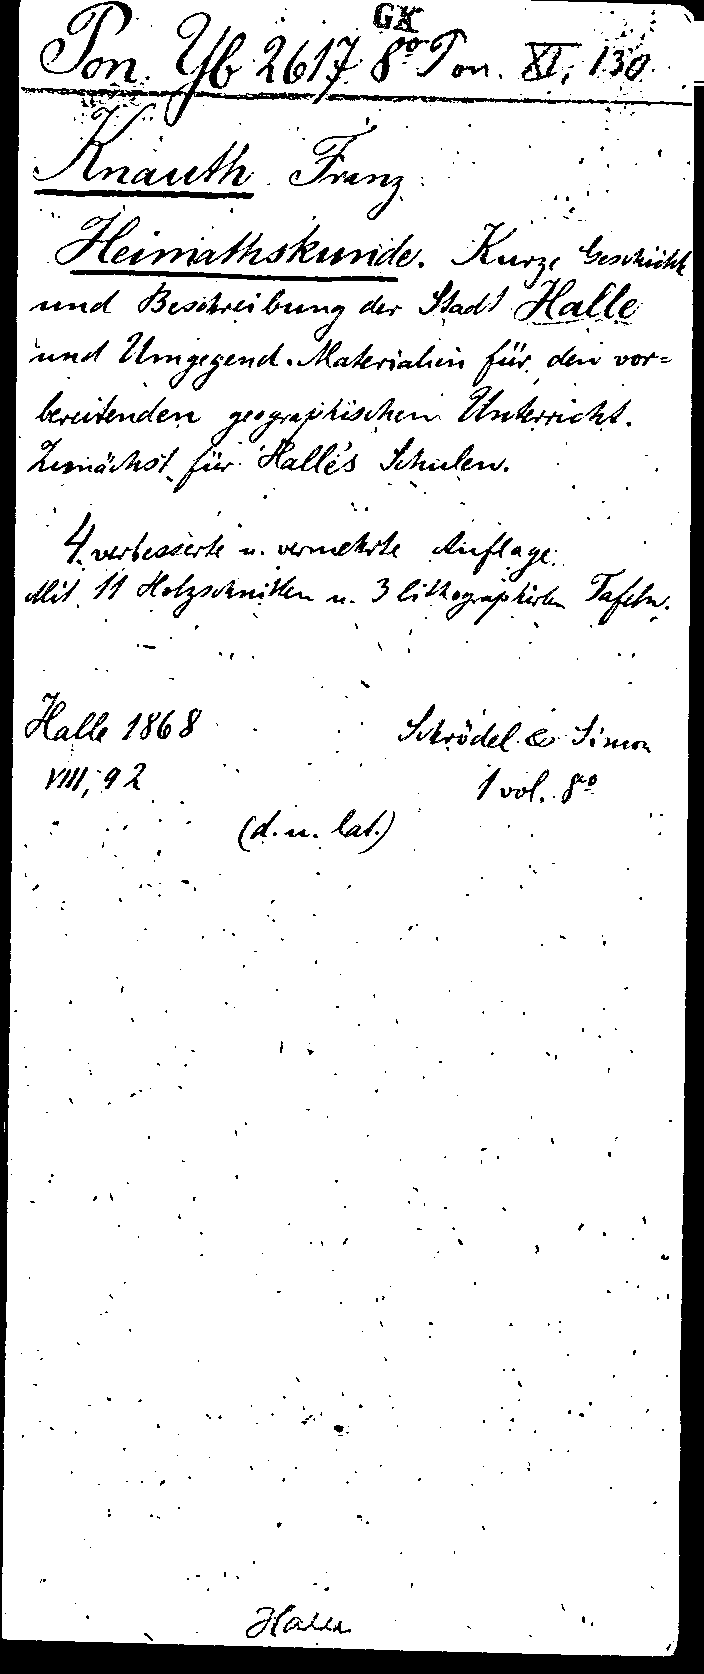 GK
Pon Yb 2617 8° Pon. XI, 130
Knauth Franz
Heimathskunde. Kurze Geschichte
und Beschreibung der Stadt Halle
und Umgegend. Materialien für den vor=
bereitenden geographischen Unterricht.
Zunächst für Halle's Schulen.
4. verbesserte u. vermehrte Auflage.
Mit 11 Holzschnitten u. 3 lithographirten Tafeln.
Halle 1868 Schrödel & Simon
VIII, 92 1 vol. 8°
(d. u. lat.)
Halle